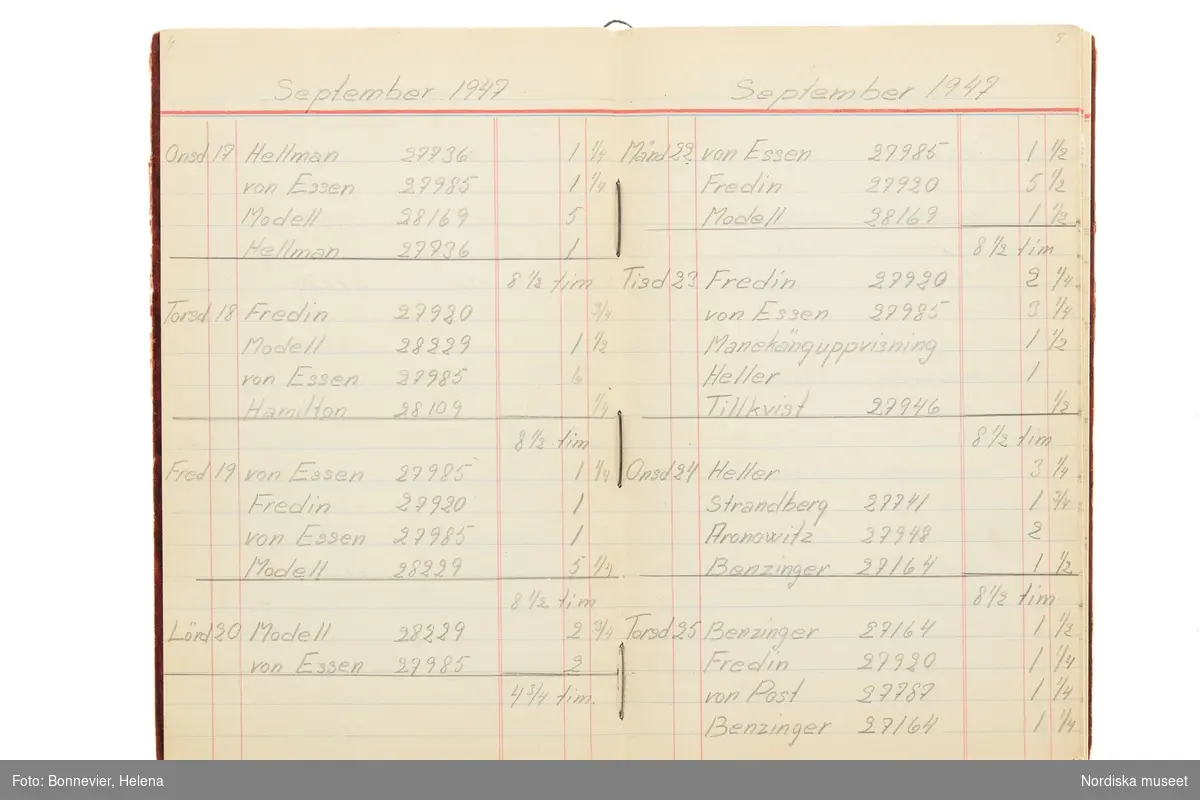 4
September 1947
Onsd 17 Hellman 27736 1 1/4
von Essen 27985 1 1/4
Modell 28169 5
Hellman 27736 1
8 1/2 tim
Torsd 18 Fredin 27920 3/4
Modell 28229 1 1/2
von Essen 27985 6
Hamilton 28109 1/4
8 1/2 tim
Fred 19 von Essen 27985 1 1/4
Fredin 27920 1
von Essen 27985 1
Modell 28229 5 1/4
8 1/2 tim
Lörd 20 Modell 28229 2 3/4
von Essen 27985 2
4 3/4 tim.
5
September 1947
Månd 22 von Essen 27985 1 1/2
Fredin 27920 5 1/2
Modell 28169 1 1/2
8 1/2 tim
Tisd 23 Fredin 27920 2 1/4
von Essen 27985 3 1/4
Manekänguppvisning 1 1/2
Heller 1
Tillkvist 27946 1/2
8 1/2 tim
Onsd 24 Heller 3 1/4
Strandberg 27741 1 3/4
Aronowitz 27948 2
Benzinger 27164 1 1/2
8 1/2 tim
Torsd 25 Benzinger 27164 1 1/2
Fredin 27920 1 1/4
von Post 27787 1 1/4
Benzinger 27164 1 1/4
Foto: Bonnevier, Helena
Nordiska museet